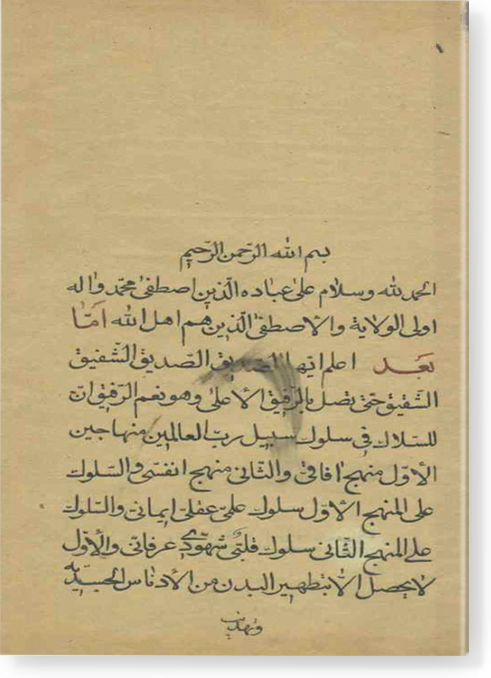 بسم الله الرحمن الرحيم
الحمد لله وسلام على عباده الذين اصطفى محمد واله
اولى الولاية والاصطفى الذين هم اهل الله امّا
بعد اعلم ايها الصديق الشفيق
الشفيق حتى يصل بالرفيق الاعلى وهو نعم الرفيق ان
للسلاك فى سلوك سبيل رب العالمين منهاجين
الاول منهج افاقى والثانى منهج انفسى والسلوك
على المنهج الاول سلوك علمى عقلى ايمانى والسلوك
على المنهج الثانى سلوك قلبى شهودى عرفانى والاول
لا يحصل الا بتطهير البدن من الادناس الحسية
وتهذيب